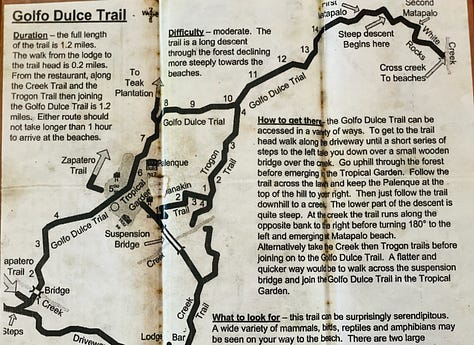 Golfo Dulce Trail
Duration – the full length
of the trail is 1.2 miles.
The walk from the lodge to
the trail head is 0.2 miles.
From the restaurant, along
the Creek Trail and the
Trogon Trail then joining
the Golfo Dulce Trail is 1.2
miles. Either route should
not take longer than 1 hour
to arrive at the beaches.
Difficulty – moderate. The
trail is a long descent
through the forest declining
more steeply towards the
beaches.
Matapalo
Second
Matapalo
Steep descent
Begins here
White
Rocks
Creek
Cross creek
To beaches
To
Teak
Plantation
14
13
12
11
10
9
8
7
6
5
4
3
2
Golfo Dulce Trial
Golfo Dulce Trial
Golfo Dulce Trial
Zapatero
Trail
Palenque
Tropical
Garden
Trogon
Trail
4
3
2
1
Manakin
Trail
1
2
3
4
Suspension
Bridge
Creek
apatero
Trail
Bridge
Creek
Steps
Driveway
Lodge
Bar
Creek
Trail
How to get there – the Golfo Dulce Trail can be
accessed in a variety of ways. To get to the trail
head walk along the driveway until a short series of
steps to the left take you down over a small wooden
bridge over the creek. Go uphill through the forest
before emerging in the Tropical Garden. Follow the
trail across the lawn and keep the Palenque at the
top of the hill to your right. Then just follow the trail
downhill to a creek. The lower part of the descent is
quite steep. At the creek the trail runs along the
opposite bank to the right before turning 180° to the
left and emerging at Matapalo beach.
Alternatively take the Creek then Trogon trails before
joining on to the Golfo Dulce Trail. A flatter and
quicker way would be to walk across the suspension
bridge and join the Golfo Dulce Trail in the Tropical
Garden.
What to look for – this trail can be surprisingly serendipitous.
A wide variety of mammals, birds, reptiles and amphibians may
be seen on your way to the beach. There are two large